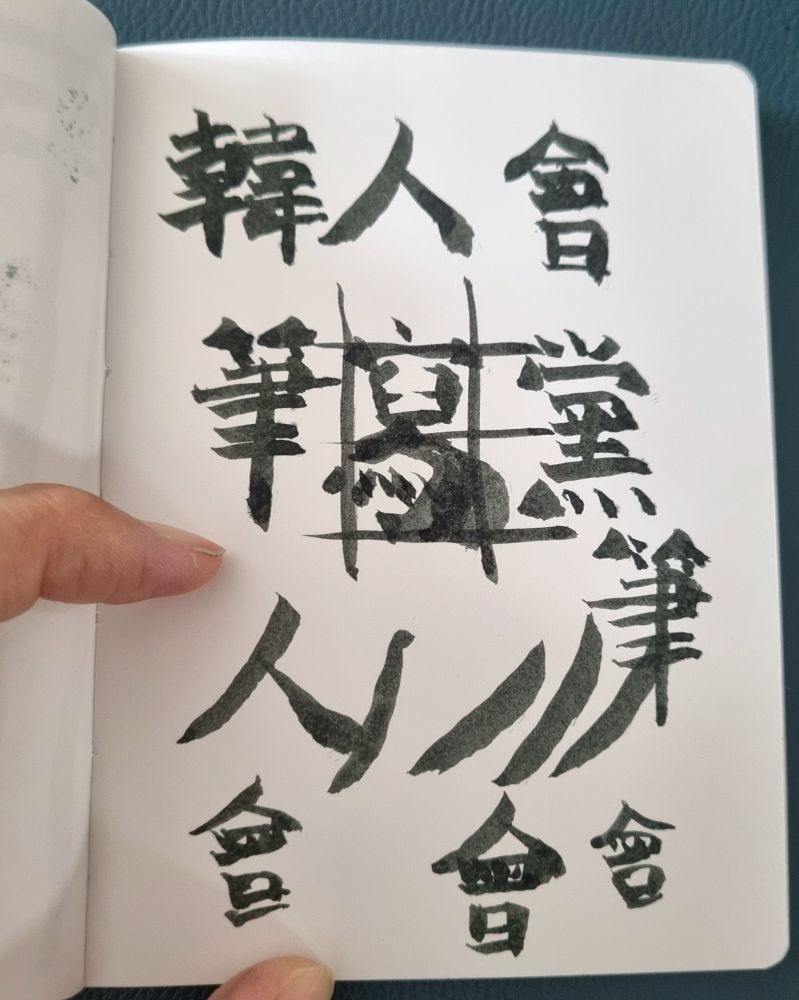 韓人會
筆寫黨
人 筆
會 會 會